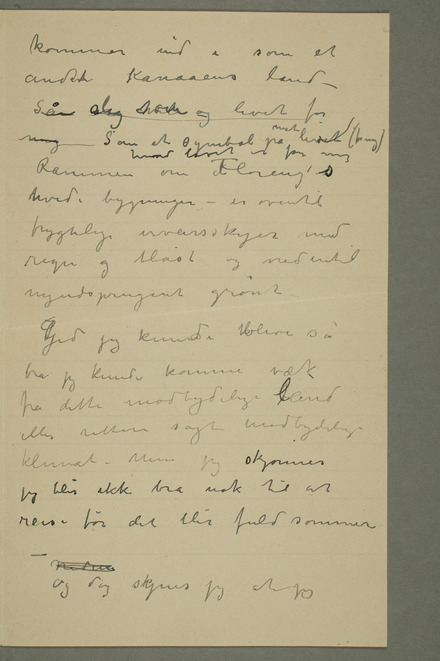 kommer ind i som et
andet Kanaaens land –
Så slog og livet for
mig – Som et symbol på livet (for mig)
hvad livet er for mig
Rammen om Florenz's
hvide bygninger – er oventil
frygtelige uveirsskyer med
regn og blæst og nedentil
nyudsprunget grønt –
Gid jeg kunde blive så
bra jeg kunde komme væk
fra dette modbydelige land
eller rettere sagt modbydelige
klimat – Men jeg skjønner
jeg blir ikke bra nok til at
reise før det blir fuld sommer
–
og dog synes jeg at jeg